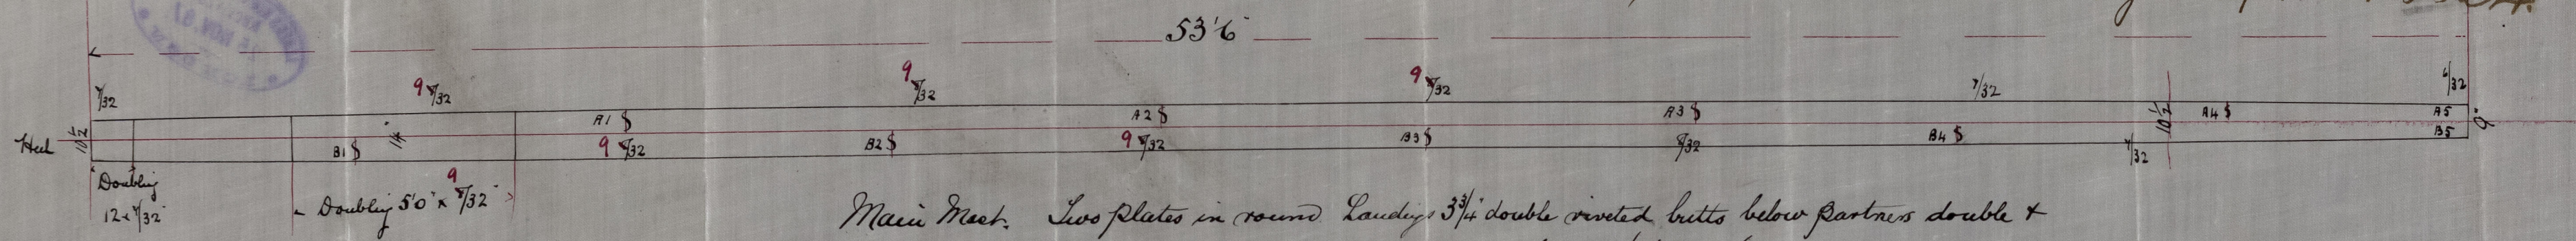 53'6"
7/32
9 8/32
9 8/32
9 8/32
7/32
6/32
Heel
10½
B1 $
14"
A1 $
9 8/32
B2 $
A2 $
9 8/32
B3 $
A3 $
8/32
B4 $
7/32
10½
A4 $
A5
B5
9"
Doubling
12 x 7/32"
Doubling 5'0" x 9 8/32"
Main Mast. Two plates in round Landings 3¾" double riveted, butts below partners double &